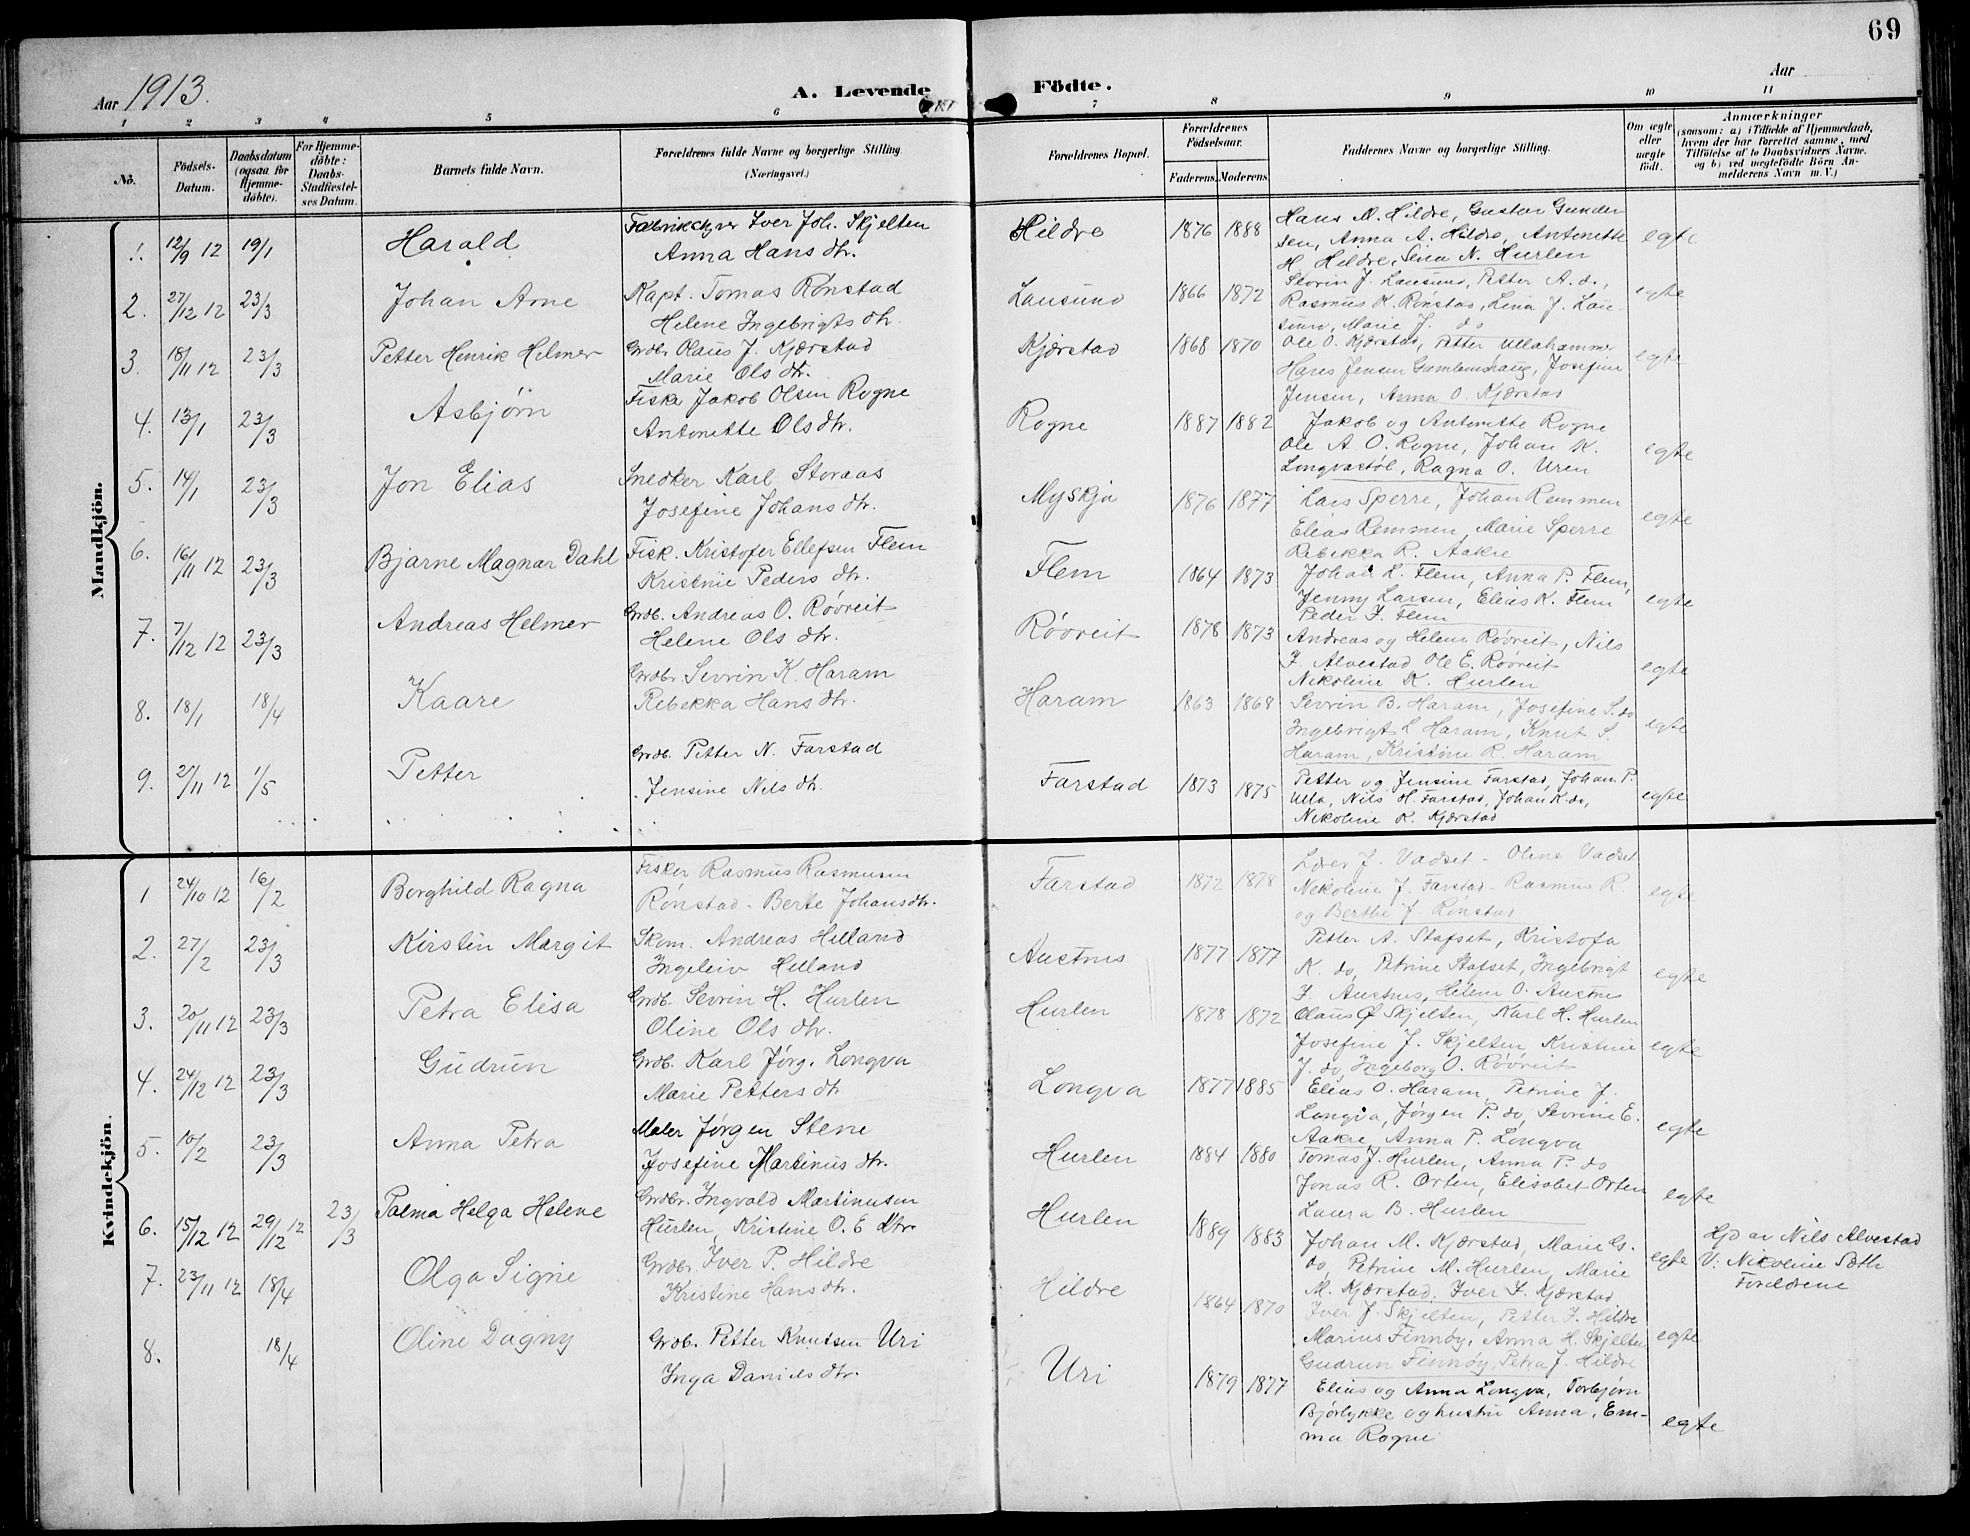 69
Aar 1913.
A. Levende Födte.
Aar
1 2 3 4 5 6 7 8 9 10 11
No.
Födsels-Datum.
Daabsdatum (ogsaa for Hjemme-döbte).
For Hjemme-döbte: Daabs-Stadfæstel-ses Datum.
Barnets fulde Navn.
Forældrenes fulde Navne og borgerlige Stilling (Næringsvei.)
Forældrenes Bopæl.
Forældrenes Födselsaar.
Faderens. Moderens.
Faddernes Navne og borgerlige Stilling.
Om ægte eller uægte födt.
Anmærkninger
(saasom: a) i Tilfælde af Hjemmedaab, hvem der har forrettet samme, med Tilföielse af to Daabsvidners Navne. og b) ved uægtefödte Börn An-melderens Navn m. V.)
Mandkjön.
1. 12/9 12 19/1 Harald
Iver Joh. Skjelten
Anna Hans dtr.
Hildre 1876 1888
Hans M. Hildre, Gustav Gunder
sen, Anna A. Hildre, Antonette
H. Hildre, Sina N. Hurlen
egte
2. 27/12 12 23/3 Johan Arne
Kapt. Tomas Rønstad
Helene Ingebrigts dtr.
Lausund 1866 1872
Sevrin J. Lausund, Petter A. do,
Rasmus K. Rønstad, Lina J. Lau-
sund, Marie J. do
egte
3. 18/11 12 23/3 Petter Henrik Helmer
Grdbr Olaus J. Kjærstad
Marie Ols dtr.
Kjærstad 1868 1870
Ole O. Kjærstad, Petter Ullahammer
Hans Jensen Gamlemshaug, Josefine
Jensen, Anna O. Kjærstad
egte
4. 13/1 23/3 Asbjørn
Fisker Jakob Olsen Rogne
Antonette Ols dtr.
Rogne 1887 1882
Jakob og Antonette Rogne
Ole A O. Rogne, Johan K.
Longvastøl, Ragna O. Uren
egte
5. 14/1 23/3 Jon Elias
Snedker Karl Storaas
Josefine Johans dtr.
Myskja 1876 1877
Lars Sperre, Johan Remmen
Elias Remmen, Marie Sperre
Rebekka R. Aakre
egte
6. 16/11 12 23/3 Bjarne Magnar Dahl
Fisk. Kristofer Ellefsen Flem
Kristine Peders dtr.
Flem 1864 1873
Johan L. Flem, Anna P. Flem,
Jenny Larsen, Elias K. Flem
Peder J. Flem
egte
7. 7/12 12 23/3 Andreas Helmer
Grdb. Andreas O. Rövreit
Helene Ols dtr.
Rövreit 1878 1873
Andreas og Helene Rövreit, Nils
J. Alvestad Ole E. Rövreit
Nikoline K. Hurlen
egte
8. 18/1 18/4 Kaare
Grdbr. Sevrin K. Haram
Rebekka Hans dtr.
Haram 1863 1868
Sevrin B. Haram, Josefine S. do
Ingebrigt L Haram, Knut S.
Haram, Kristine R. Haram
egte
9. 2/11 12 1/5 Petter
Grdb. Petter N. Farstad
Jensine Nils dtr.
Farstad 1873 1875
Petter og Jensine Farstad, Johan P.
Ulla, Nils H. Farstad, Johan K. do,
Nikoline K. Kjærstad
egte
Kvindekjön.
1 24/10 12 16/2 Borghild Ragna
Fisker Rasmus Rasmussen
Rønstad - Berte Johansdtr.
Farstad 1872 1878
J. Vadset - Oline Vadset
Nikoline J. Farstad - Rasmus R.
og Berthe J. Rønstad
egte
2. 27/2 23/3 Kirstin Margit
Skom. Andreas Helland
Ingeleiv Helland
Austnes 1877 1877
Petter A. Stafset, Kristofa
K. do, Petrine Stafset, Ingebrigt
J. Austnes, Helene O. Austnes
egte
3. 20/11 12 23/3 Petra Elisa
Grdb. Sevrin H. Hurlen
Oline Ols dtr.
Hurlen 1878 1872
Olaus Ø Skjelten, Karl H. Hurlen
Josefine J. Skjelten Kristine
J. do, Ingeborg O. Röövreit
egte
4. 24/12 12 23/3 Gudrun
Grdb. Karl Jörg. Longva
Marie Petters dtr
Longva 1877 1885
Elias O. Haram, Petrine J.
Longva, Jörgen P. do, Sevrine E.
Aakre, Anna P. Longva
egte
5. 10/2 23/3 Anna Petra
Maler Jørgen Stene
Josefine Martinus dtr.
Hurlen 1884 1880
Tomas J. Hurlen, Anna P. do
Jonas R. Orten, Elisabet Orten
Laura B. Hurlen
egte
6. 15/12 12 29/12 12 23/3 Palma Helga Helene
Grdbr. Ingvald Martinusen
Hurlen, Kristine O. E dtr.
Hurlen 1889 1883
Johan M. Kjærstad, Marie G.
do, Petrine M. Hurlen, Marie
M. Kjærstad, Iver J. Kjærstad
egte
Hjd av Nils Alvestad
V: Nikoline Sæth
Foreldrene
7. 23/11 12 18/4 Olga Signe
Grdbr. Iver P. Hildre
Kristine Hans dtr.
Hildre 1864 1870
Iver J. Skjelten, Petter J. Hildre
Marius Finnöy, Anna H. Skjelten
Gudrun Finnöy, Petra J. Hildre
egte
8. 18/4 Oline Dagny
Grdb. Petter Knutsen Uri
Inga Daniels dtr.
Uri 1879 1877
Elias og Anna Longva, Torbjørn
Bjørlykke og hustru Anna, Em-
ma Rogne
egte